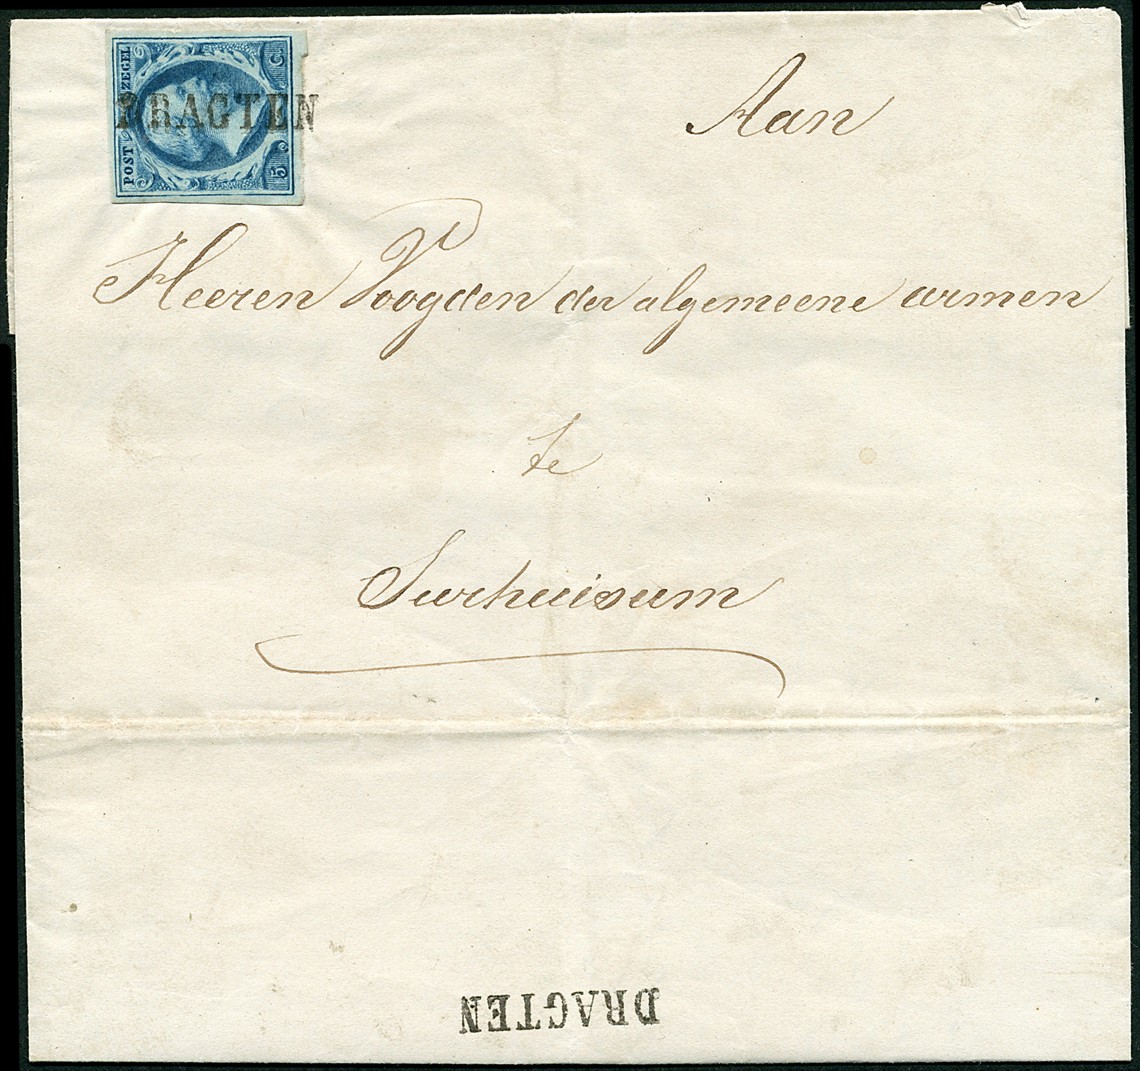 POST ZEGEL
5 C
DRAGTEN
Aan
Heeren Voogden der algemeene armen
te
Surhuisum
DRAGTEN